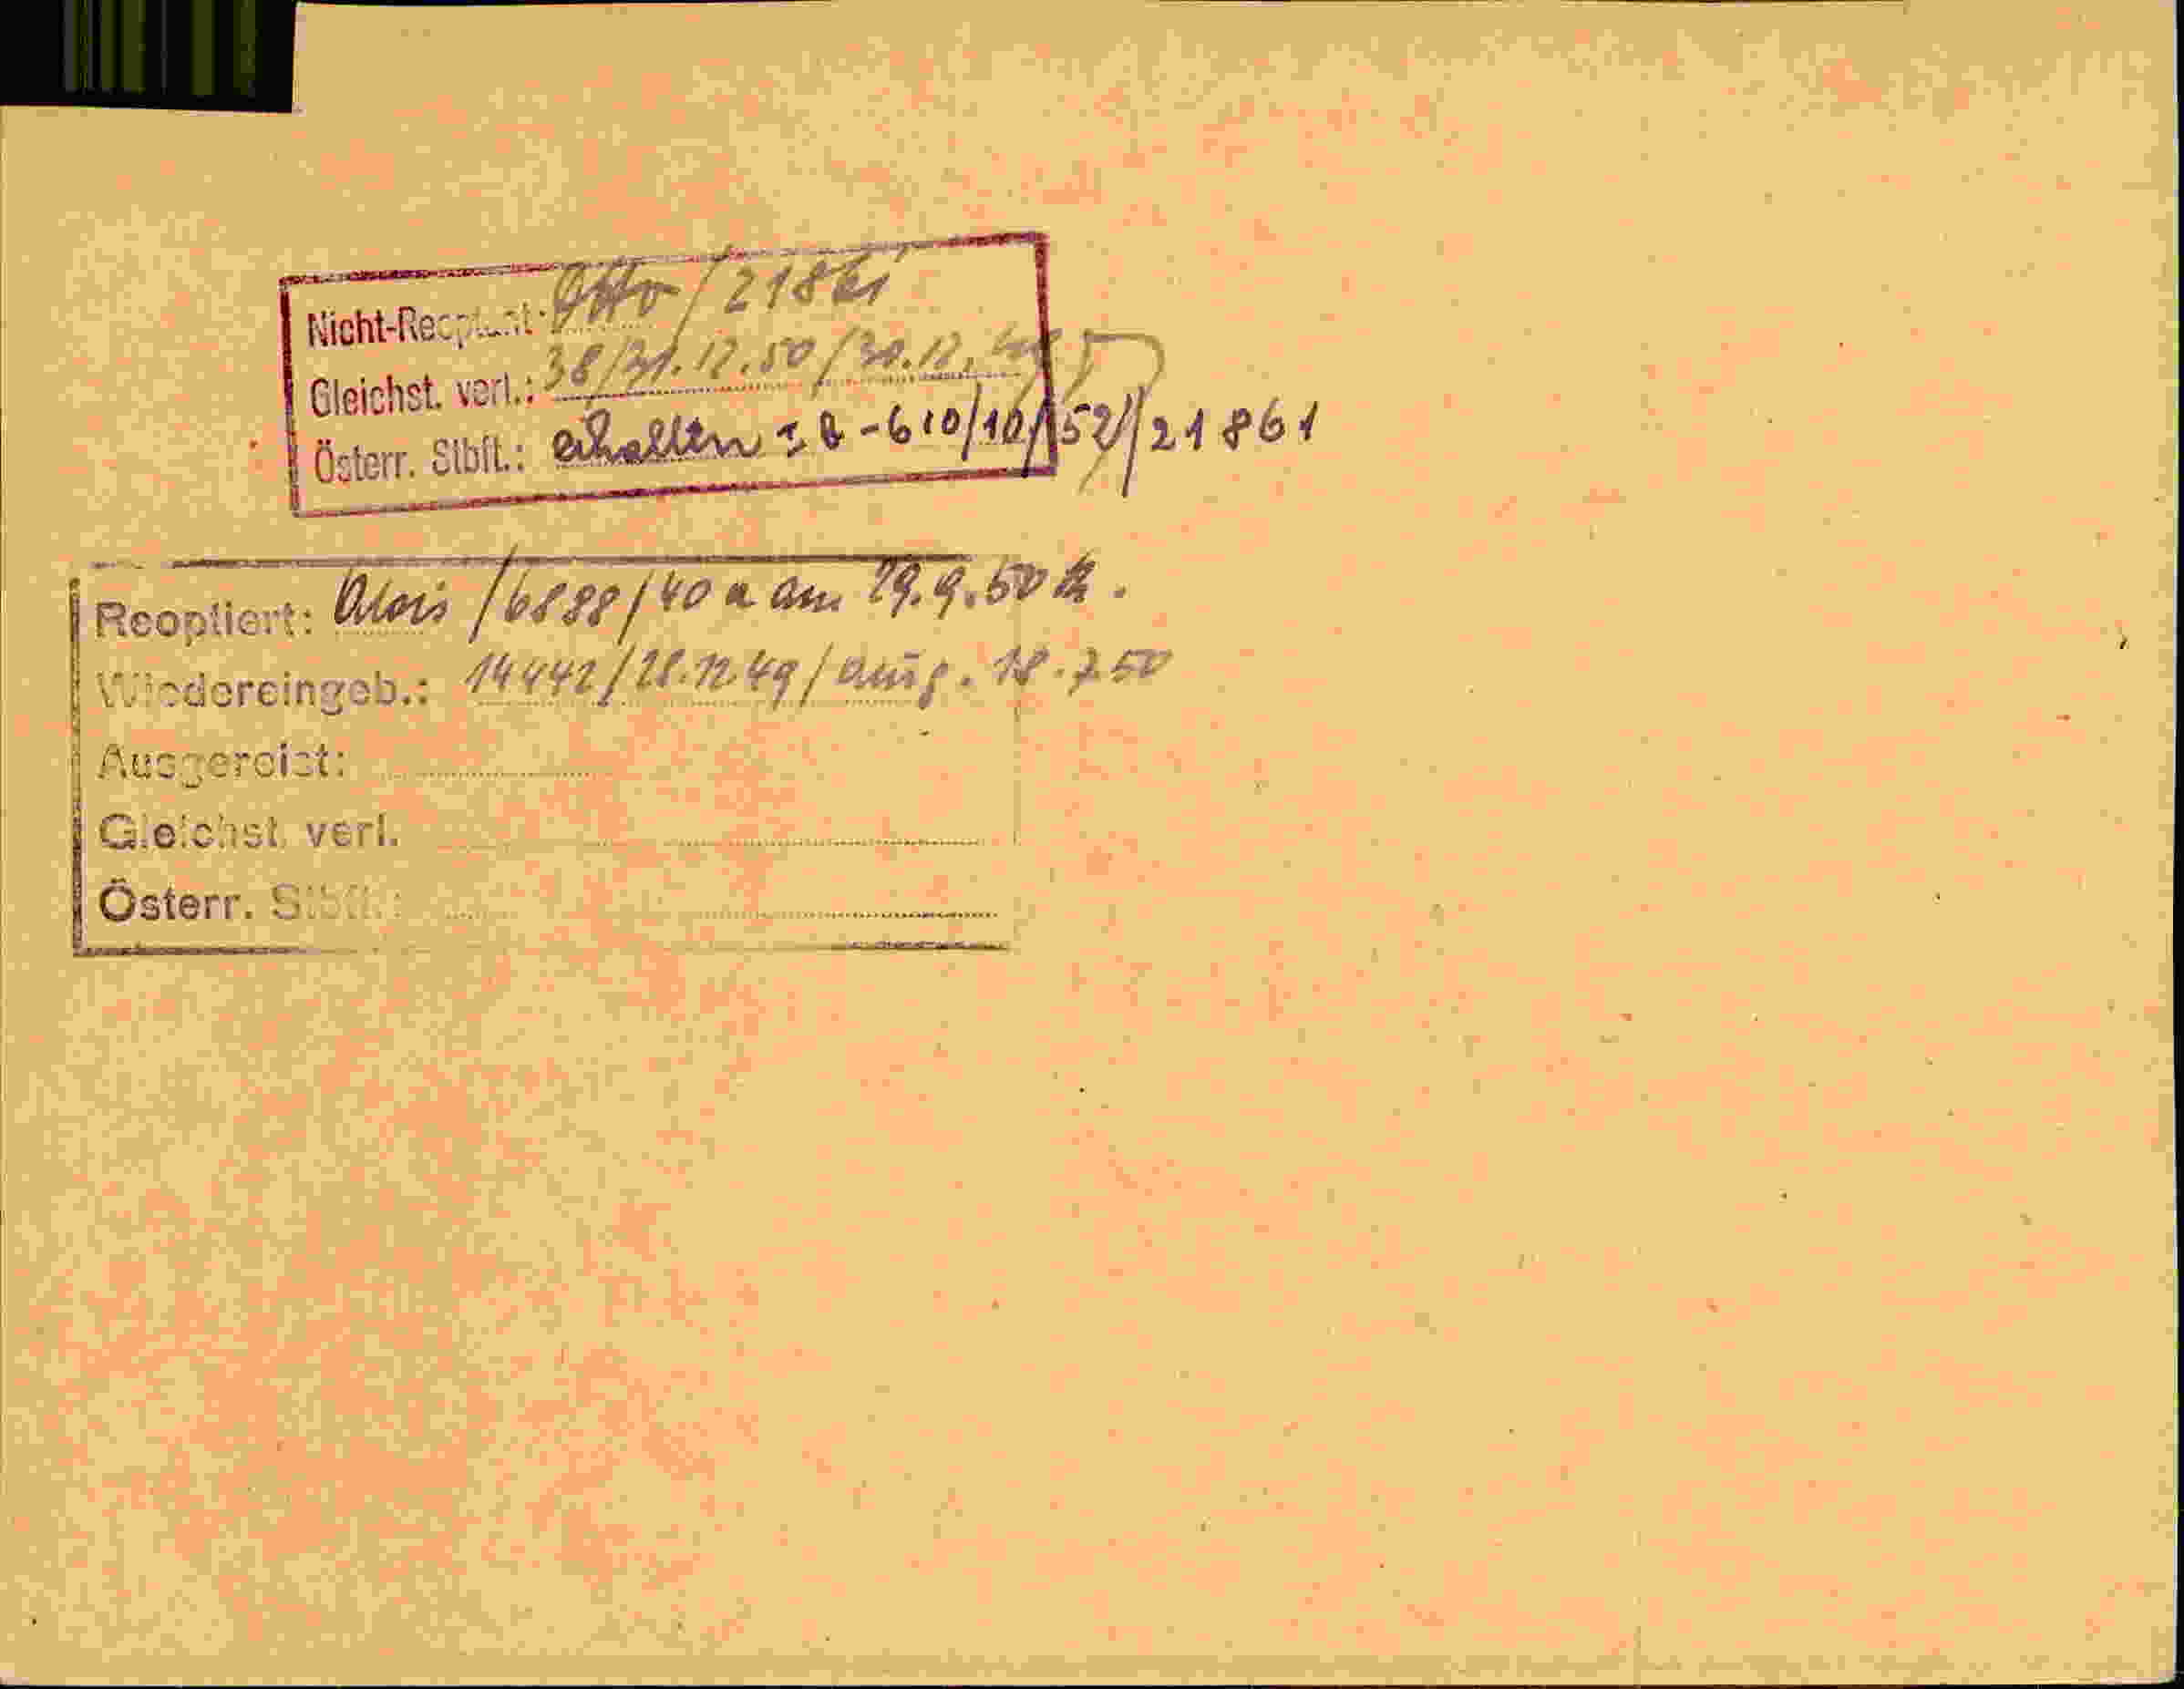 Nicht-Reoptant: Otto / 21861
Gleichst. verl.: 38/31.12.50/30.12.
Österr. Stbft.: erhalten I b - 610/10/52//21861
Reoptiert: Alois / 6888/40 a am 29.9.50
Wiedereingeb.: 14442/28.12.49/ausg. 18.7.50
Ausgereist:
Gleichst. verl.
Österr. Stbft.: